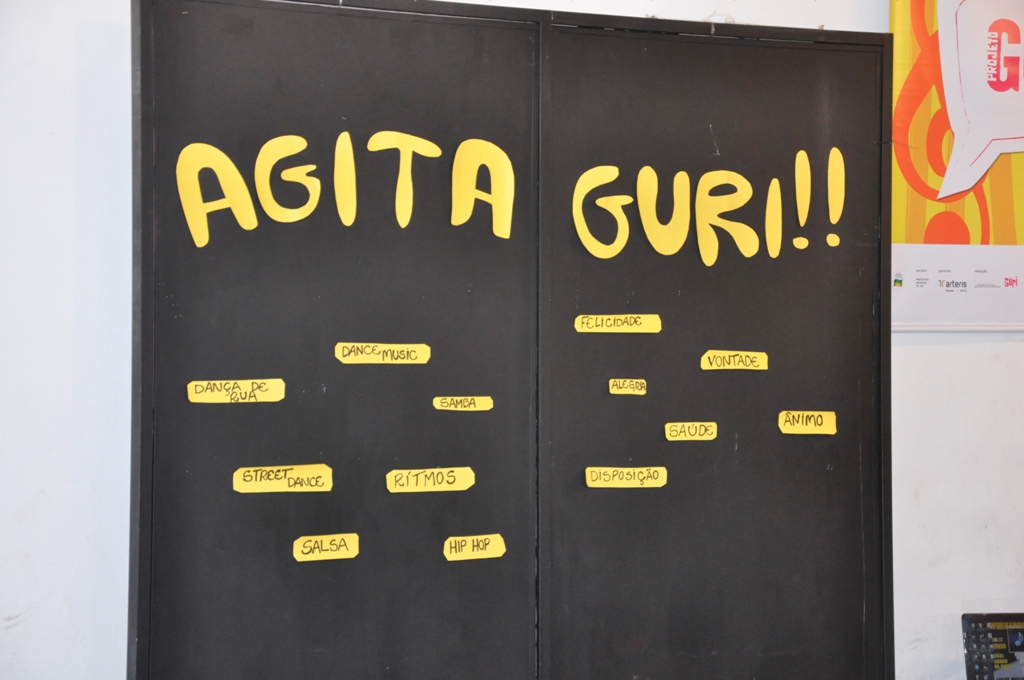 AGITA GURI!!
DANCE MUSIC
DANÇA DE
RUA
SAMBA
STREET DANCE
RITMOS
SALSA
HIP HOP
FELICIDADE
VONTADE
ALEGRIA
ÂNIMO
SAÚDE
DISPOSIÇÃO
PROJETO
G
arteris
GURI